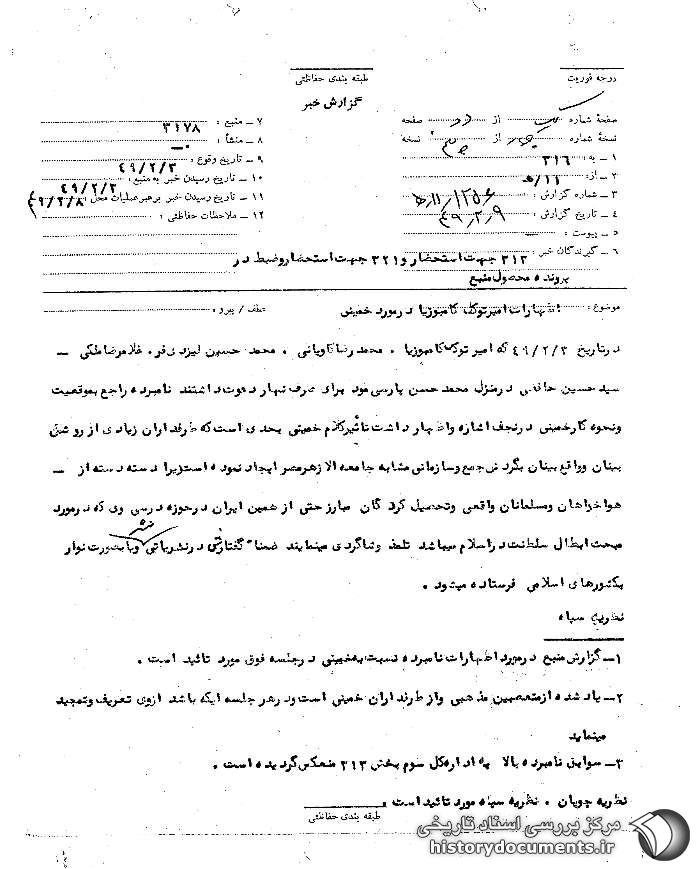 درجه فوریت
طبقه بندی حفاظتی
گزارش خبر
صفحهٔ شماره یک از دو صفحه
نسخهٔ شماره از نسخهٔ
۱ ــ به : ۳۱۶
۲ ــ از : ۱۱/ه
۳ ــ شماره گزارش : ۱۲۵۶/ه۱۱
۴ ــ تاریخ گزارش : ۴۹/۲/۹
۵ ــ پیوست :
۶ ــ گیرندگان خبر : ۳۱۲ جهت استحضار و ۳۲۱ جهت استحضار و ضبط در
پرونده محصول منبع
۷ ــ منبع : ۳۱۷۸
۸ ــ منشأ :
۹ ــ تاریخ وقوع : ۴۹/۲/۳
۱۰ ــ تاریخ رسیدن خبر به منبع : ۴۹/۲/۳
۱۱ ــ تاریخ رسیدن خبر برهبر عملیات محل : ۴۹/۲/۸
۱۲ ــ ملاحظات حفاظتی :
موضوع : اظهارات امیر توکل کامبوزیا در مورد خمینی
عطف / پیرو :
در تاریخ ۴۹/۲/۳ که امیر توکل کامبوزیا . محمد رضا کاویانی . محمد حسین ایزدی فر. غلامرضا ملکی ــ
سید حسین حافظی در منزل محمد حسن پارسی مود برای صرف نهار دعوت داشتند نامبرده راجع بموقعیت
ونحوه کار خمینی در نجف اشاره واظهار داشت تأثیر کلام خمینی بحدی است که طرفداران زیادی از روشن
بینان وواقع بینان بگردش جمع وسازمانی مشابه جامعه الازهر مصر ایجاد نموده است زیرا دسته دسته از ــ
هواخواهان ومسلمانان واقعی وتحصیل کرد گان مبارز حتی از همین ایران در حوزه درسی وی که در مورد
مبحث ابطال سلطنت در اسلام میباشد تلمذ وشاگردی مینمایند ضمنا" گفتارش در نشریاتی نشر ویا بصورت نوار
بکشورهای اسلامی فرستاده میشود .
نظریه سپاه
۱ــ گزارش منبع در مورد اظهارات نامبرده نسبت به خمینی در جلسه فوق مورد تائید است .
۲ــ یاد شده از متعصبین مذهبی واز طرفداران خمینی است ودر هر جلسه ایکه باشد ازوی تعریف وتمجید
مینماید
۳ــ سوابق نامبرده بالا به اداره کل سوم بخش ۳۱۲ منعکس گردیده است .
نظریه چوپان . نظریه سپاه مورد تائید است .
طبقه بندی حفاظتی
مرکز بررسی اسناد تاریخی
historydocuments.ir